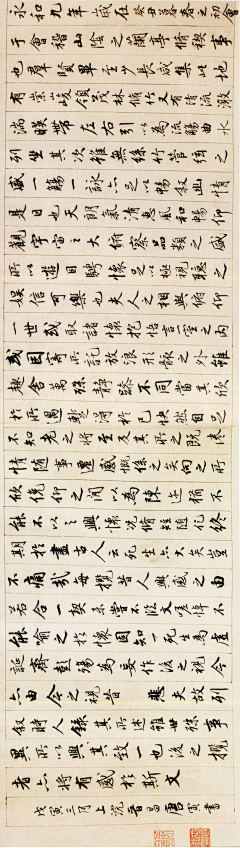 永和九年歲在癸丑暮春之初會
于會稽山陰之蘭亭脩稧事
也群賢畢至少長咸集此地
有崇山峻領茂林脩竹又有清流激
湍暎帶左右引以為流觴曲水
列坐其次雖無絲竹管絃之
盛一觴一詠亦足以暢敘幽情
是日也天朗氣清惠風和暢仰
觀宇宙之大俯察品類之盛
所以遊目騁懷足以極視聽之
娛信可樂也夫人之相與俯仰
一世或取諸懷抱悟言一室之內
或因寄所託放浪形骸之外雖
趣舍萬殊靜躁不同當其欣
於所遇蹔得於己怏然自足
不知老之將至及其所之既惓
情隨事遷感慨係之矣向之所
欣俛仰之間以為陳迹猶不
能不以之興懷況脩短隨化終
期於盡古人云死生亦大矣豈
不痛哉每攬昔人興感之由
若合一契未嘗不臨文嗟悼不
能喻之於懷固知一死生為虛
誕齊彭殤為妄作後之視今
亦由今之視昔悲夫故列
敘時人錄其所述雖世殊事
異所以興懷其致一也後之攬
者亦將有感於斯文
戊寅三月上浣晉昌唐寅書